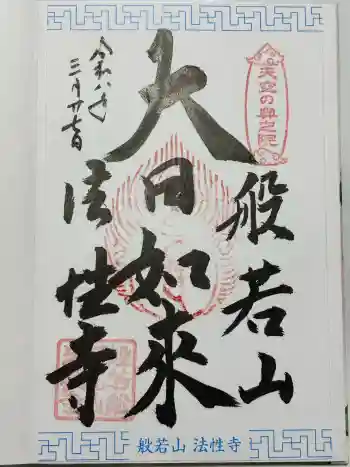 天空の奥之院
般若山
大日如来
法性寺
令和八年
三月廿七日
般若山 法性寺